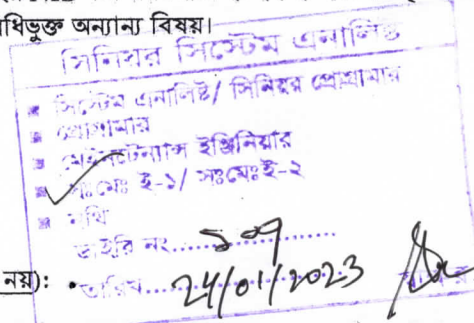 ধিভুক্ত অন্যান্য বিষয়।
সিনিয়র সিস্টেম এনালিস্ট
সিস্টেম এনালিষ্ট/ সিনিয়র প্রোগ্রামার
প্রোগ্রামার
মেইনটেন্যান্স ইঞ্জিনিয়ার
সঃমেঃ ই-১/ সঃমেঃই-২
নথি
ডাইরি নং..............
নয়): • তারিখ.... 24/01/2023